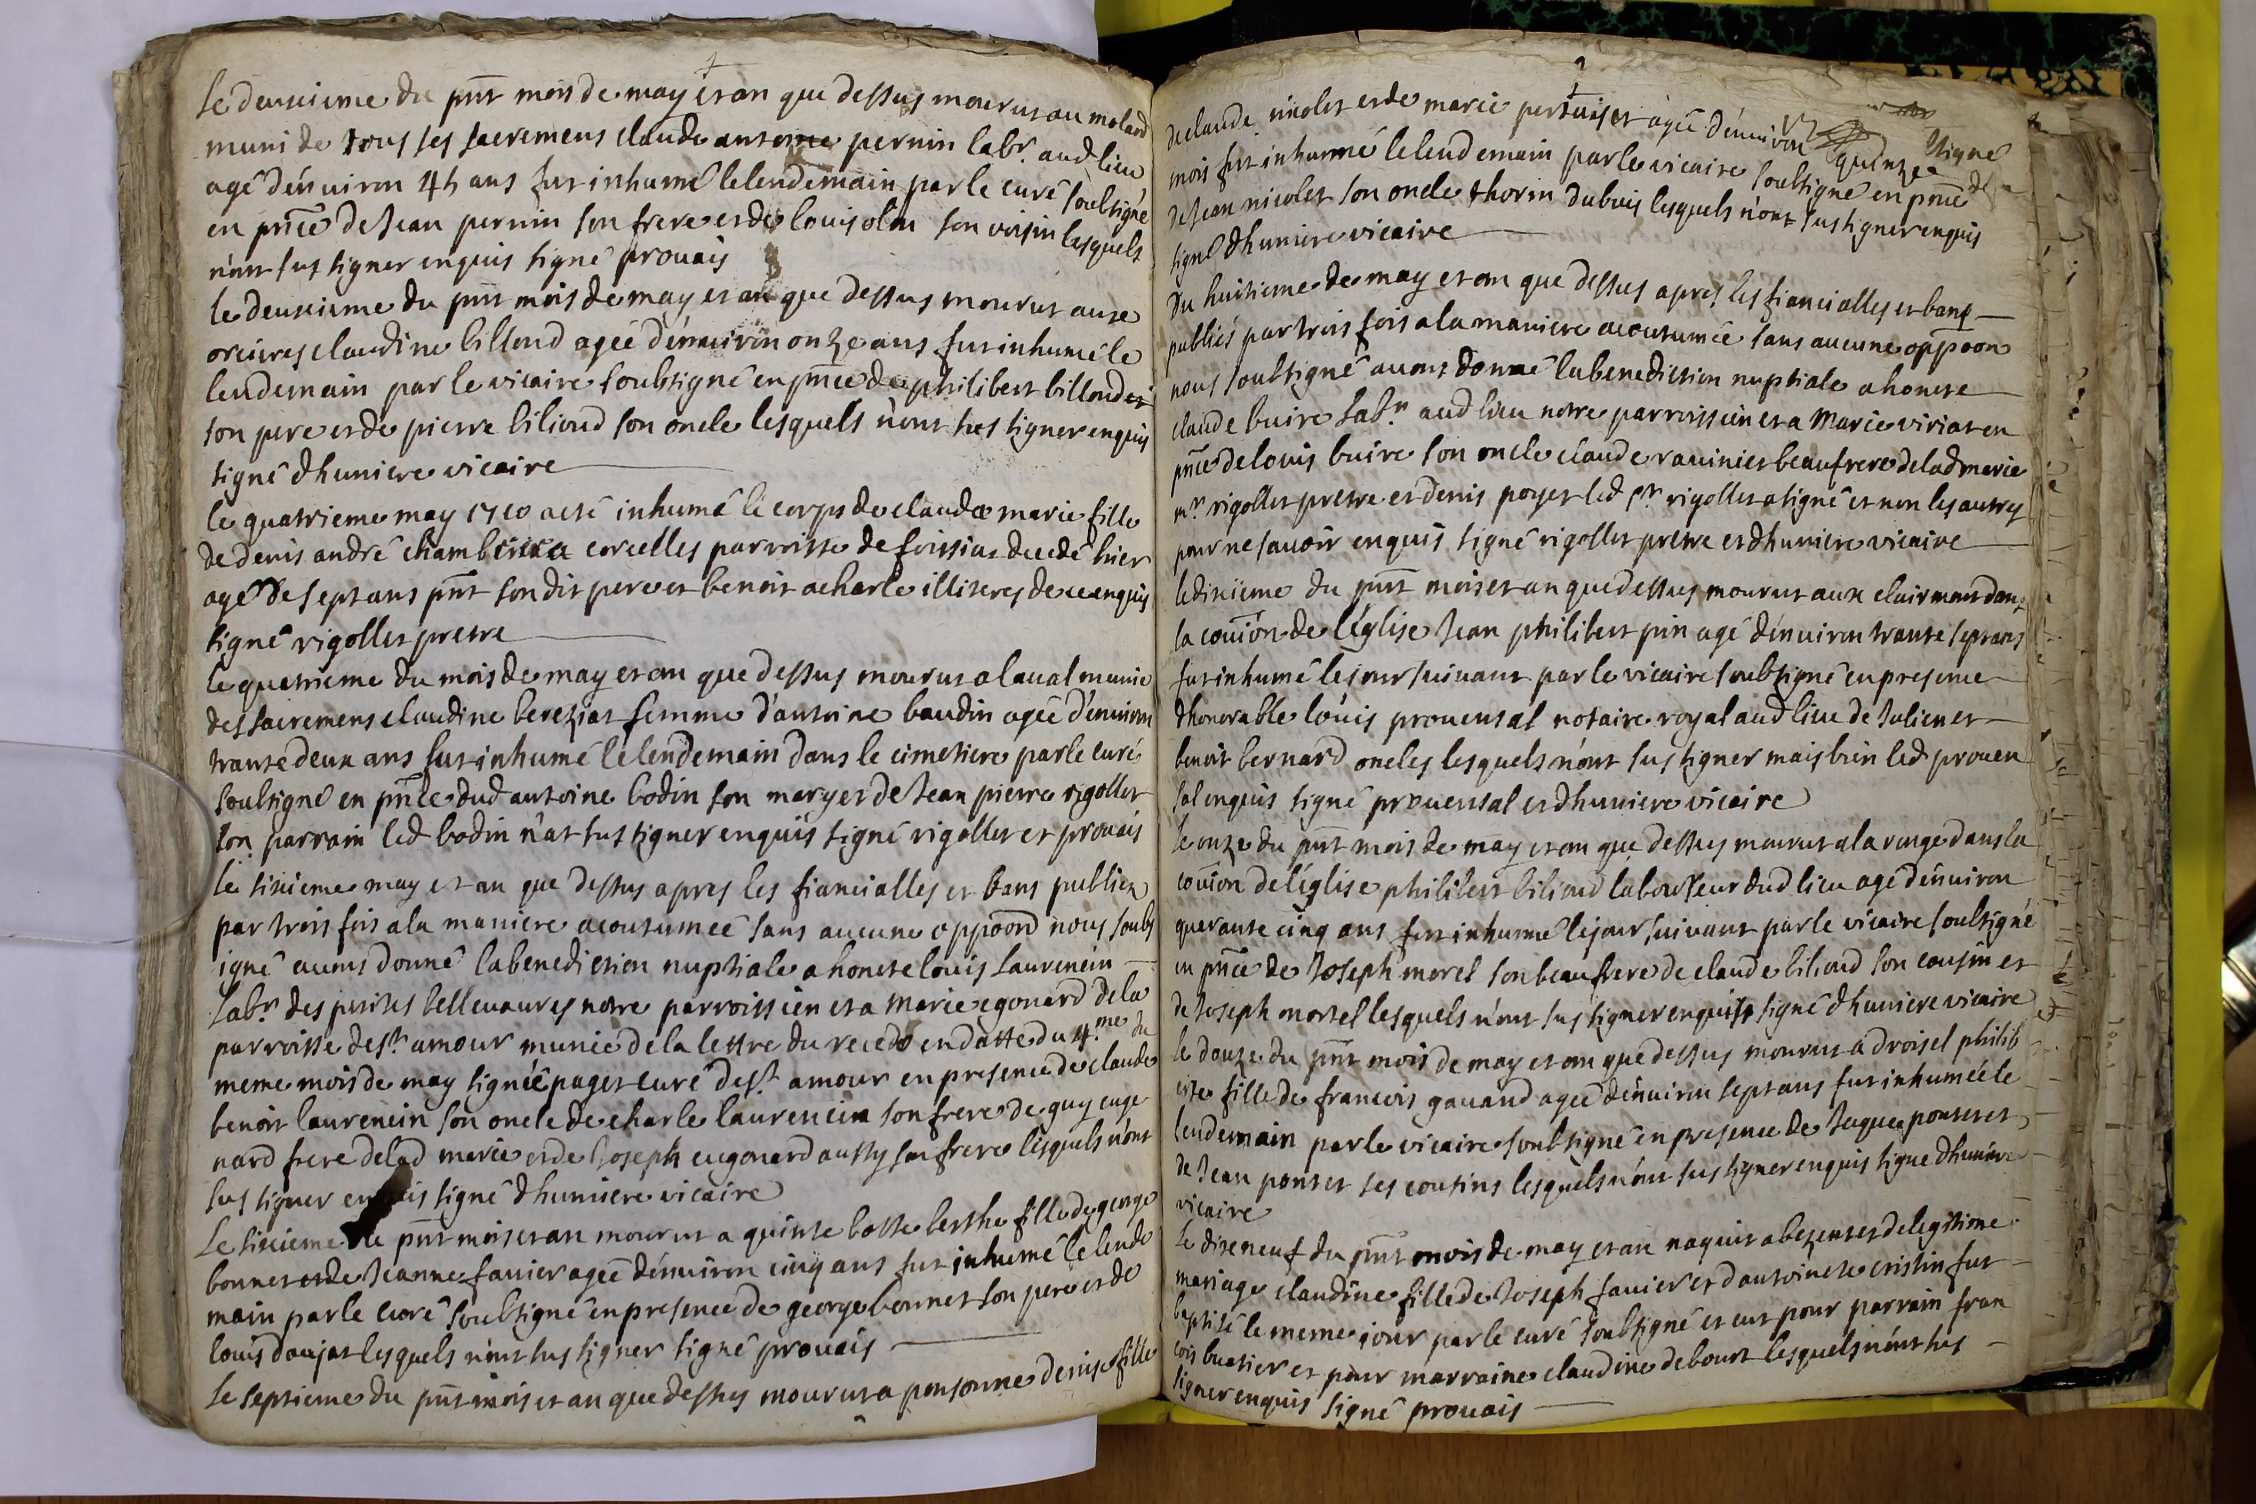 le deuxieme du pnt mois de may et an que dessus mourut au molard
muni de tous ses sacremens claude antoine pernin labr. aud lieu
agé d'énuiron 45 ans fut inhumé le lendemain par le curé soubsigné
en pnce de Jean pernin son frere et de louis son voisin lesquels
n'ont sus signer enquis signé prouais
le deuxieme du pnt mois de may et an que dessus mourut aux
orcires claudine billoud agée d'énuiron onze ans fut inhumé le
lendemain par le vicaire soubsigné en pnce de philibert billoud et
son pere et de pierre bilioud son oncle lesquels n'ont sus signer enquis
signé dhumiere vicaire
le quatrieme may 1710 a eté inhumé le corps de claude marie fille
de denis andré a corcelles parroisse de foissiat decedé hier
agé de sept ans pnt son dit pere et benoit acharle illiteres de ce enquis
signé rigollet pretre
le quatrieme du mois de may et an que dessus mourut a laual munie
des sacremens claudine bereziat femme d'antoine baudin agée d'énuiron
trante deux ans fut inhumé le lendemain dans le cimetiere par le curé
soubsigné en pnce dud antoine bodin son mary et de Jean pierre rigollet
son parrain led bodin n'at sus signer enquis signé rigollet et prouais
le sixieme may et an que dessus apres les fiancialles et bans publiez
par trois fois a la maniere acoutumeé sans aucune oppoon nous soubs
igné auons donné la benediction nuptiale a honete louis laurencin
labr. des petites belleuaures notre parroissien et a marie egonard de la
parroisse de st. amour munie de la lettre du recedo en datte du 4.me du
meme mois de may signée paget curé de st. amour en presence de claude
benoit laurencin son oncle de charle laurencin son frere de guy euge
nard frere de lad marie et de Joseph eugonard aussy son frere lesquels n'ont
sus signer enquis signé dhumiere vicaire
Le sixieme du pnt mois et an mourut a quinte bosse berthe fille de george
bonnet et de Jeanne fauier agée d'énuiron cinq ans fut inhumé le lende
main par le curé soubsigné en presence de george bonnet son pere et de
louis daujat lesquels n'ont sus signer signé prouais
le septieme du pnt mois et an que dessus mourut a ponsonne denise fille
de claude nicolet et de marie pertuiset agée d'énuiron quinze
mois fut inhumé le lendemain par le vicaire soubsigné en pnce
de Jean nicolet son oncle thorin dubuis lesquels n'ont sus signer enquis
signé dhumiere vicaire
du huitieme de may et an que dessus apres les fiancialles et bans
publiés par trois fois a la maniere acoutumée sans aucune oppoon
nous soubsigné auons donné la benediction nuptiale a honete
claude buire labr. aud lieu notre parroissien et a Marie viriat en
pnce de louis buire son oncle claude rauinier beaufrere de lad marie
mr. rigollet pretre et denis poyet led sr. rigollet a signé et non les autres
pour ne sauoir enquis signé rigollet pretre et dhumiere vicaire
le dixieme du pnt mois et an que dessus mourut aux clairmont dans
la couion de l'église Jean philibert pin agé d'énuiron trante sept ans
fut inhumé le jour suiuant par le vicaire soubsigné en presence
dhonorable louis prouensal notaire royal aud lieu de Julien et
benoit bernard oncles lesquels n'ont sus signer mais bien led prouen
sal enquis signé prouensal et dhumiere vicaire
le onze du pnt mois de may et an que dessus mourut a la verge dans la
couion de l'église philibert bilioud laboureur dud lieu agé d'énuiron
querante cinq ans fut inhumé le jour suiuant par le vicaire soubsigné
en pnce de Joseph morel son beau frere de claude bilioud son cousin et
de Joseph mortel lesquels n'ont sus signer enquis signé dhumiere vicaire
le douze du pnt mois de may et an que dessus mourut a droisel philib
erte fille de francois gauand agée d'énuiron sept ans fut inhumée le
lendemain par le vicaire soubsigné en presence de Jaques ponset et
de Jean ponset ses cousins lesquels n'ont sus signer enquis signe dhumiere
vicaire
Le dixneuf du pnt mois de may et an naquit a bezentet de legitime
mariage claudine fille de Joseph fauier et d'antoinete cristin fut
baptisé le meme jour par le curé soubsigné et eut pour parrain fran
cois buatier et pour marraine claudine debourt lesquels n'ont sus
signer enquis signé prouais